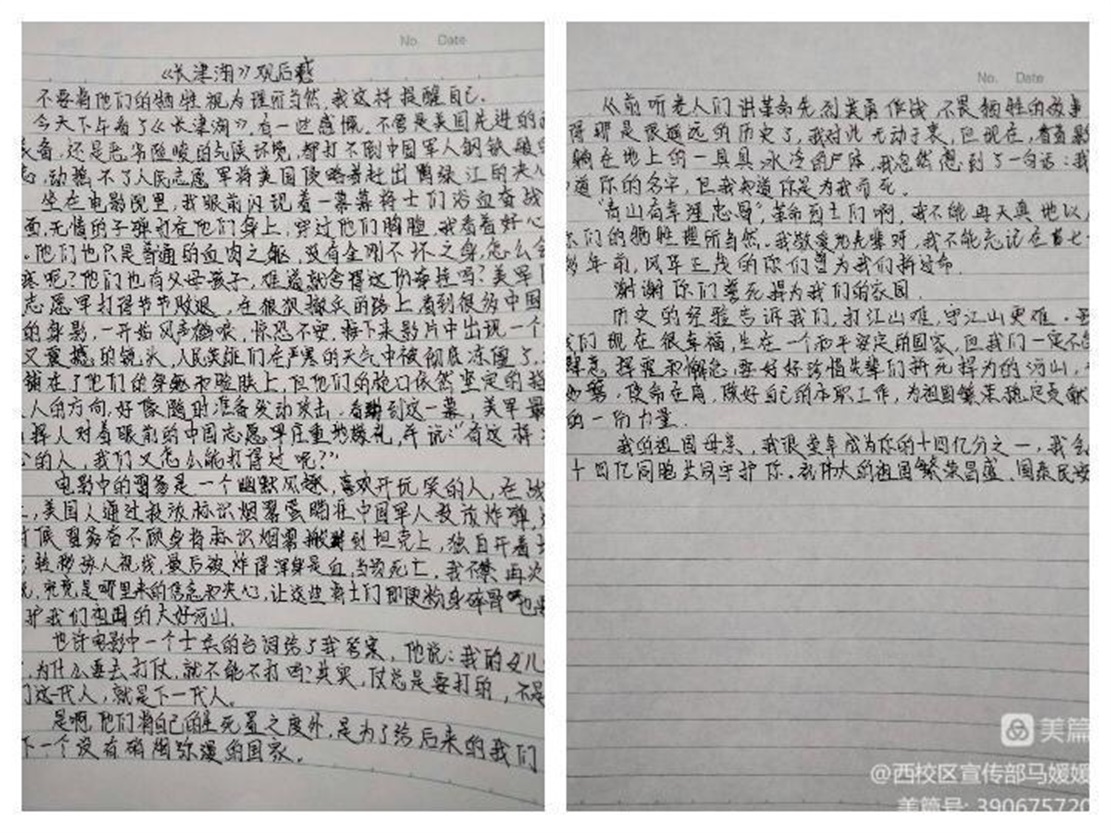 No. Date
《长津湖》观后感
不要将他们的牺牲视为理所当然,我这样提醒自己.
今天下午看了《长津湖》,有一些感慨。不管是美国先进的
装备,还是恶劣险峻的气候环境,都打不倒中国军人钢铁般
志,动摇不了人民志愿军将美国侵略者赶出鸭绿江的决心
坐在电影院里,我眼前闪现着一幕幕将士们浴血奋战
面,无情的子弹打在他们身上,穿过他们胸膛,我看着好心
。他们也只是普通的血肉之躯,没有金刚不坏之身,怎么会
呢?他们也有父母孩子,难道就舍得这份牵挂吗?美军
志愿军打得节节败退,在狼狈撤兵的路上,看到很多中国
的身影,一开始风声鹤唳,惊恐不安,接下来影片中出现一个
又震撼的镜头,人民英雄们在严寒的天气中被彻底冻僵了.
铺在了他们的穿躯和脸肤上,但他们的枪口依然坚定的指
人的方向,好像随时准备发动攻击,看到这一幕,美军最
指挥人对着眼前的中国志愿军庄重地敬礼,并说:“有这样
的人,我们又怎么能打得过呢?”
电影中的雷爹是一个幽默风趣,喜欢开玩笑的人,在战
,美国人通过投放标识烟雾蛋瞄准中国军人投放炸弹,
雷爹奋不顾身将标识烟雾搬到坦克上,独自开着
转移敌人视线,最后被炸得浑身是血,当场死亡,我不禁再次
,究竟是哪里来的信念和决心,让这些将士们即使粉身碎骨也
护我们祖国的大好河山.
也许电影中一个士兵的台词给了我答案,他说:我的女儿
,为什么要去打仗,就不能不打吗?其实,仗总是要打的,不是
们这一代人,就是下一代人。
是啊,他们将自己的生死置之度外,是为了给后来的我们
下一个没有硝烟弥漫的国家。
No. Date
从前听老人们讲革命先烈英勇作战,不畏牺牲的故事
得那是很遥远的历史了,我对此无动于衷,但现在,看着影
躺在地上的一具具冰冷的尸体,我忽然想到了一句话:我
道你的名字,但我知道你是为我而死.
“青山有幸埋忠骨”,革命将士们啊,我不能再天真地以
你们的牺牲理所当然。我敬爱的先辈呀,我不能忘记在首七
多年前,风华正茂的你们曾为我们拼过命.
谢谢你们誓死捍为我们的家国.
历史的经验告诉我们,打江山难,守江山更难.
我们现在很幸福,生在一个和平安定的国家,但我们一定不
挥霍和懈怠,要好好珍惜先辈们拼死捍为的河山,
,使命在肩,做好自己的本职工作,为祖国繁荣稳定贡献
的一份力量.
我的祖国母亲,我很荣幸成为你的十四亿分之一,我会
十四亿同胞共同守护你.祝伟大的祖国繁荣昌盛,国泰民安
美篇
@西校区宣传部马媛媛
美篇号: 390675720